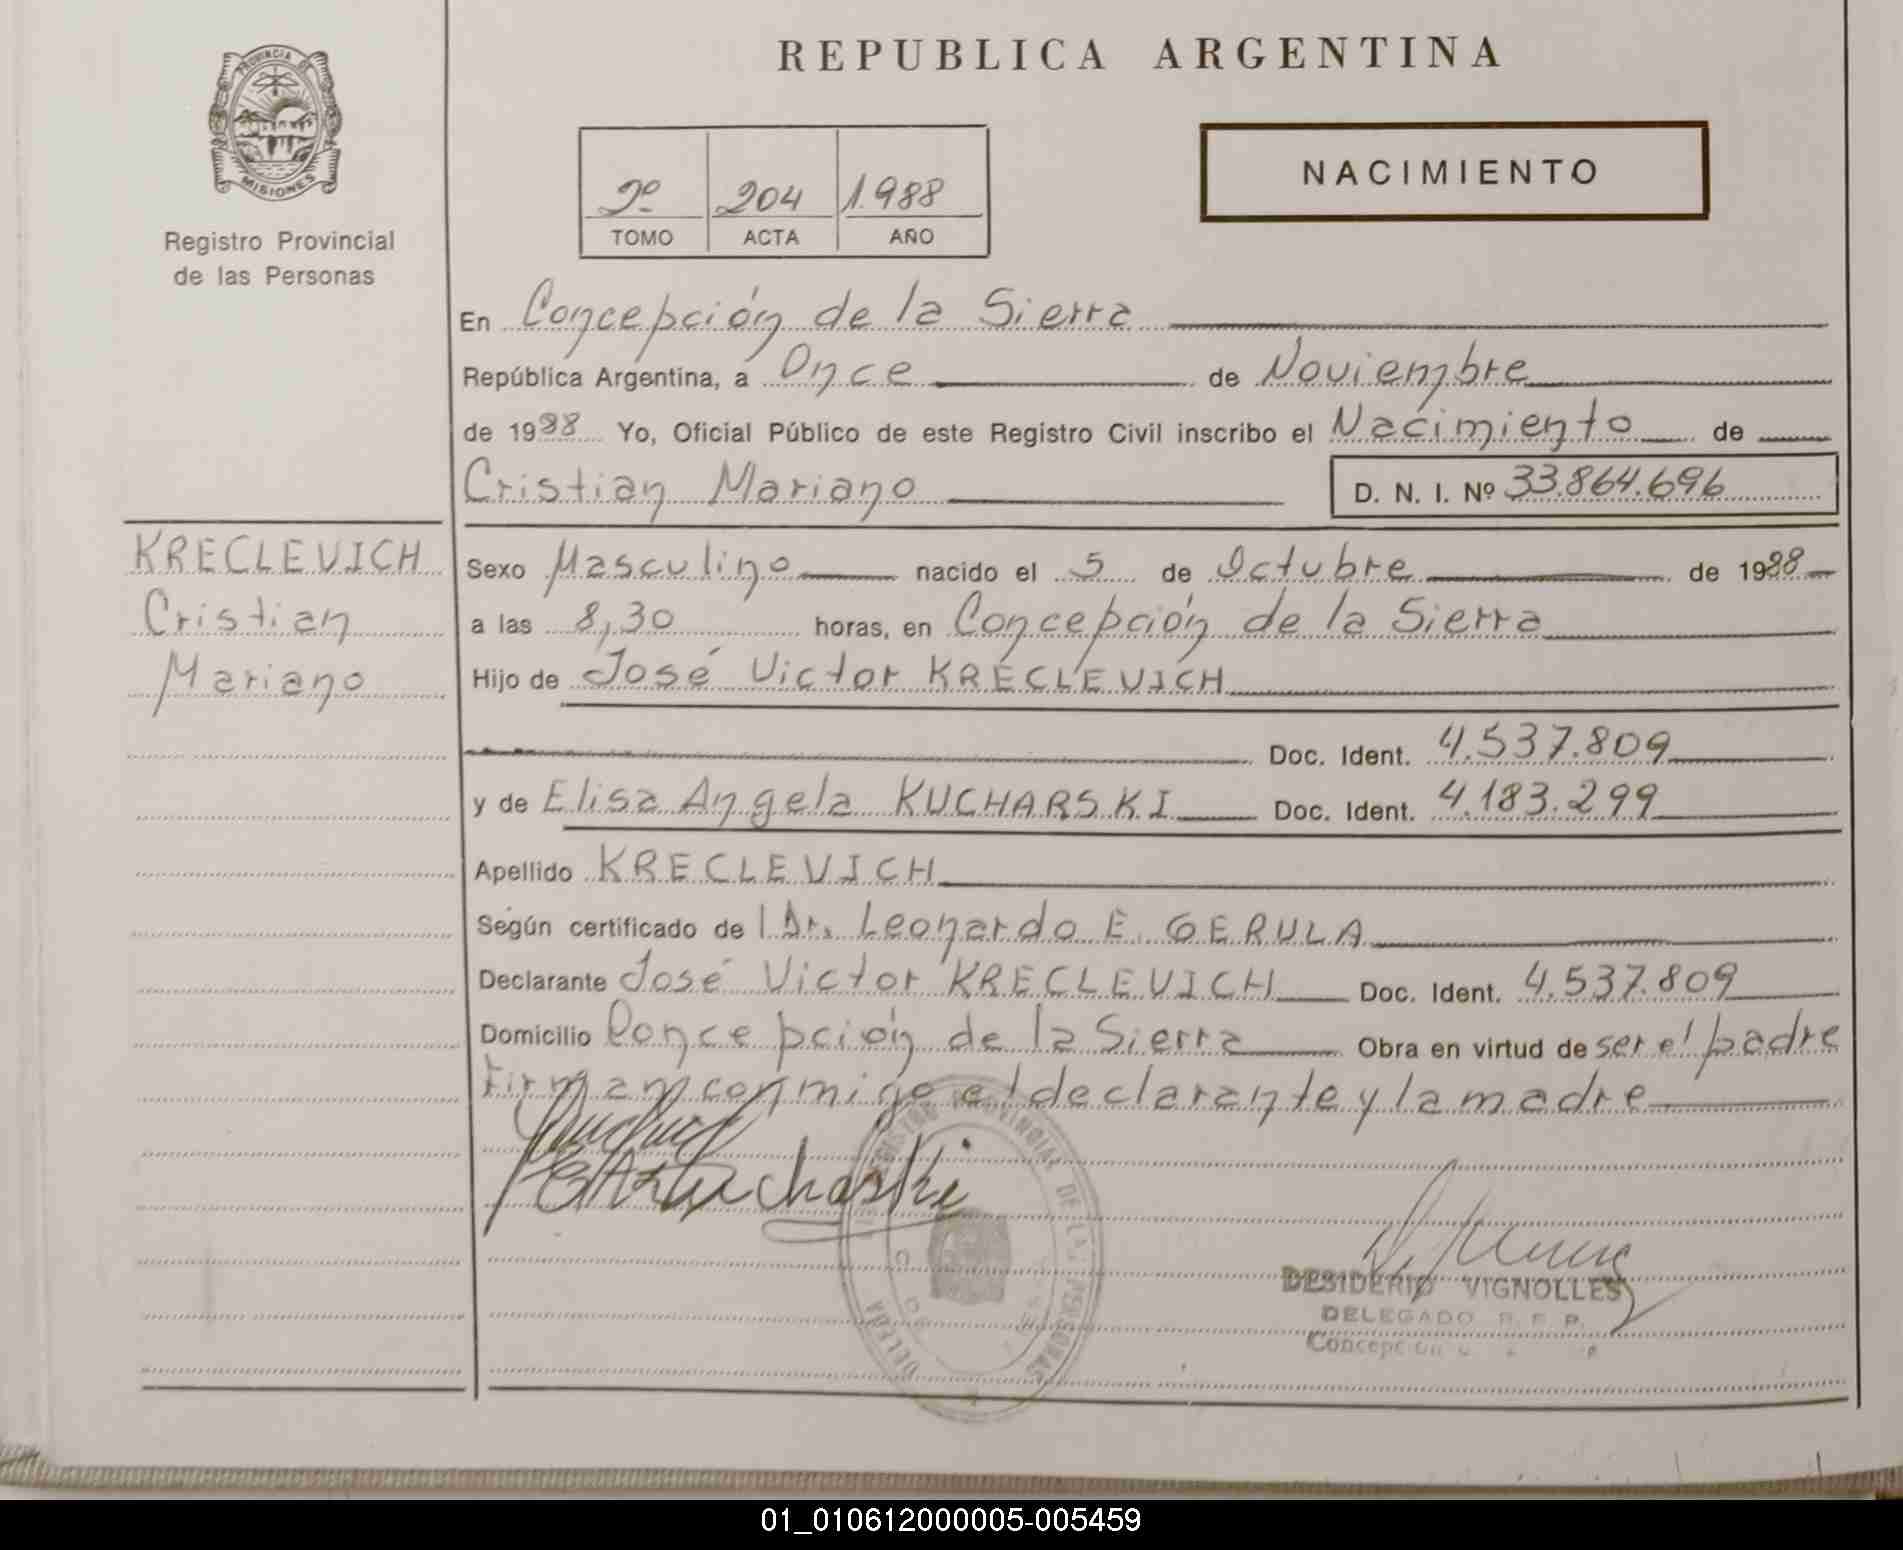 REPUBLICA ARGENTINA
PROVINCIA DE
MISIONES
Registro Provincial
de las Personas
2º 204 1.988
TOMO ACTA AÑO
NACIMIENTO
En Concepción de la Sierra
República Argentina, a Once de Noviembre
de 1988 Yo, Oficial Público de este Registro Civil inscribo el Nacimiento de
Cristian Mariano D. N. I. Nº 33.864.696
KRECLEVICH
Cristian
Mariano
Sexo Masculino nacido el 5 de Octubre de 1988
a las 8,30 horas, en Concepción de la Sierra
Hijo de José Victor KRECLEVICH
Doc. Ident. 4.537.809
y de Elisa Angela KUCHARSKI Doc. Ident. 4.183.299
Apellido KRECLEVICH
Según certificado de l Dr. Leonardo E. GERULA
Declarante José Victor KRECLEVICH Doc. Ident. 4.537.809
Domicilio Concepción de la Sierra Obra en virtud de ser el padre
Firman conmigo el declarante y la madre
REGISTRO PROVINCIAL DE LAS PERSONAS
DESIDERIO VIGNOLLES
DELEGADO R. P. P.
01_010612000005-005459